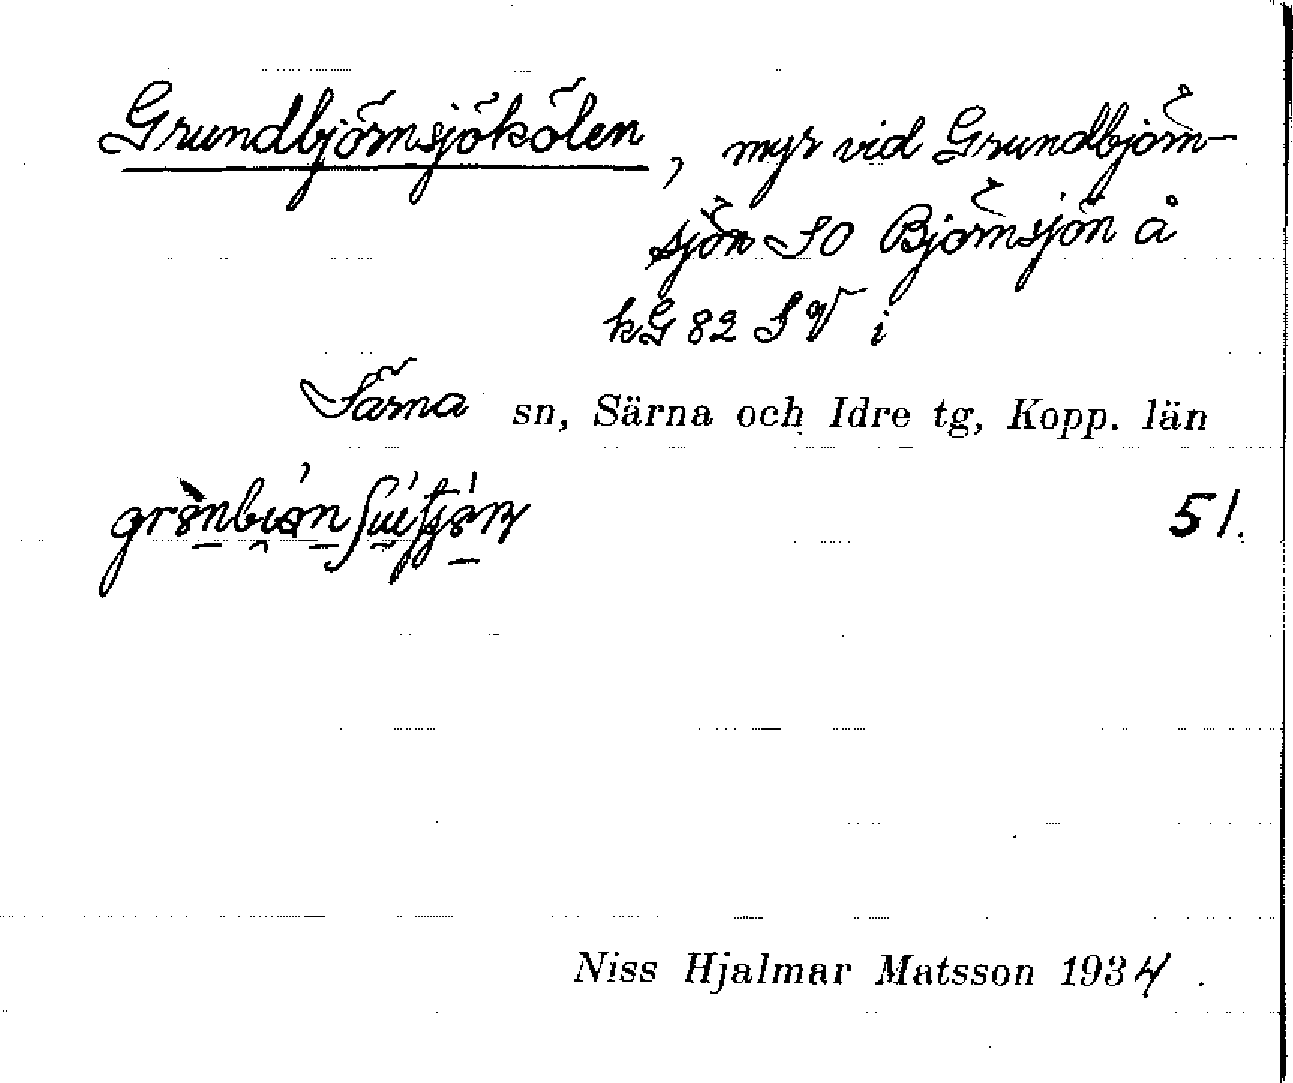 Grundbjörnsjökölen, myr vid Grundbjörn-
sjön SO Björnsjön å
kG 82 SV i
Särna sn, Särna och Idre tg, Kopp. län
51.
Niss Hjalmar Matsson 1934.